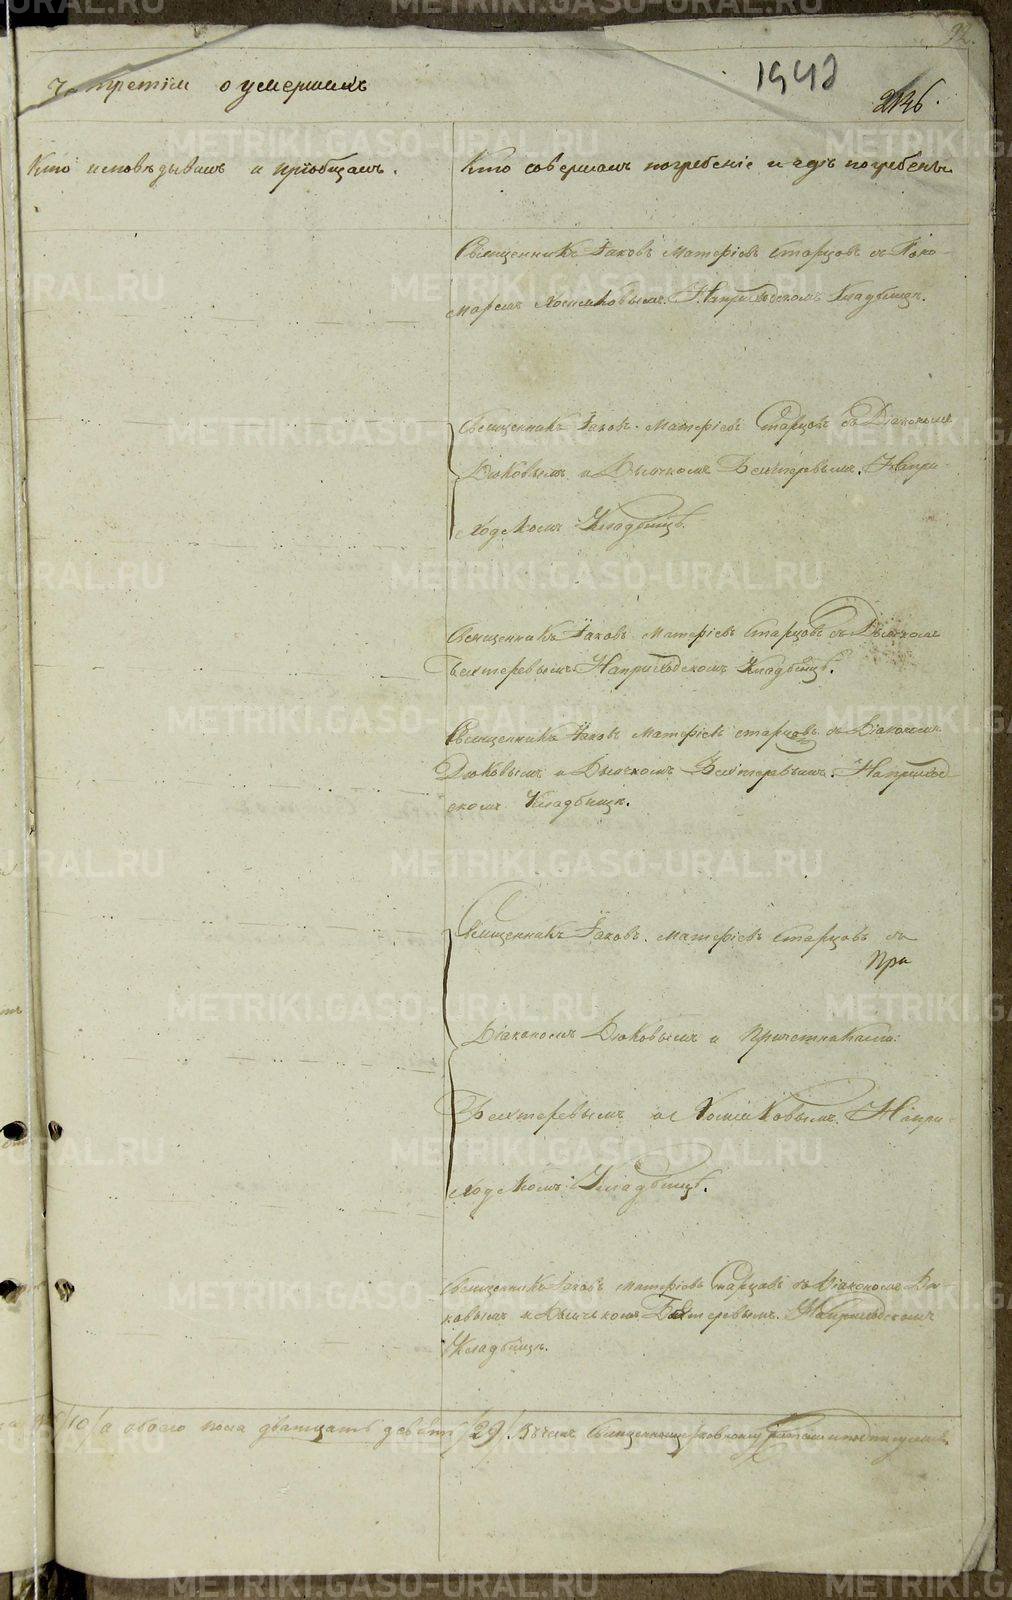 92.
ч. третїи о умершихъ
1942
2136.
Кто исповѣдывалъ и прїобщалъ.
Кто совершалъ погребенїе и гдѣ погребены
Священникъ Іаковъ Матфїевъ Старцовъ съ Поно-
маремъ Хомяковымъ. На приходскомъ Кладбищѣ.
Священникъ Іаковъ Матфїевъ Старцовъ съ Дїакономъ
Дюковымъ и Дьячкомъ Бехтеревымъ. На при-
ходскомъ Кладбищѣ.
Священникъ Іаковъ Матфїевъ Старцовъ съ Дьячкомъ
Бехтеревымъ На приходскомъ Кладбищѣ.
Священникъ Іаковъ Матфїевъ Старцовъ съ Дїакономъ
Дюковымъ и Дьячкомъ Бехтеревымъ. На приход-
скомъ Кладбищѣ.
Священникъ Іаковъ Матфїевъ Старцовъ съ
При
Дїакономъ Дюковымъ и Причетниками:
Бехтеревымъ и Хомяковымъ. На при-
ходскомъ Кладбищѣ.
Священникъ Іаковъ Матфїевъ Старцовъ съ Дїакономъ Дю-
ковымъ и Дьячькомъ Бехтеревымъ. На приходскомъ
Кладбищѣ.
/10/ а обоего пола дватцать девять /29/. Въ чемъ Священно
METRIKI.GASO-URAL.RU